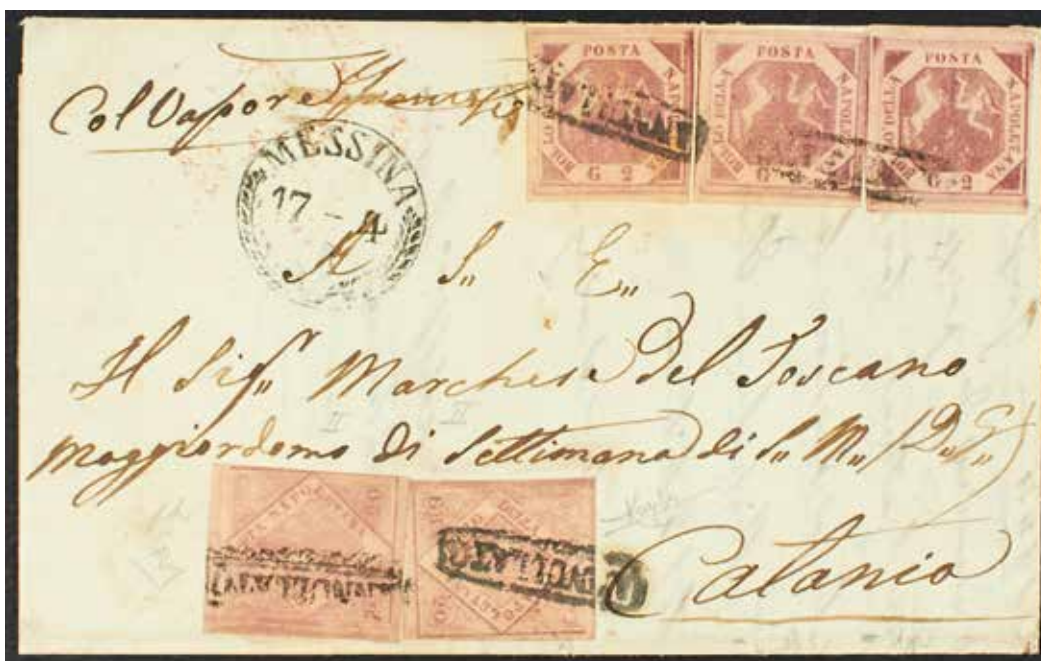 Col Vapore
MESSINA
17 - 4
BOLLO DELLA POSTA NAPOLETANA
G 2
BOLLO DELLA POSTA NAPOLETANA
G 2
BOLLO DELLA POSTA NAPOLETANA
G 2
ANNULLATO
A S,, E,,
Il Sig,, Marchese Del Toscano
Maggiordomo di Settimana di S,, M,, (D,, G,,)
Catania
ANNULLATO
ANNULLATO